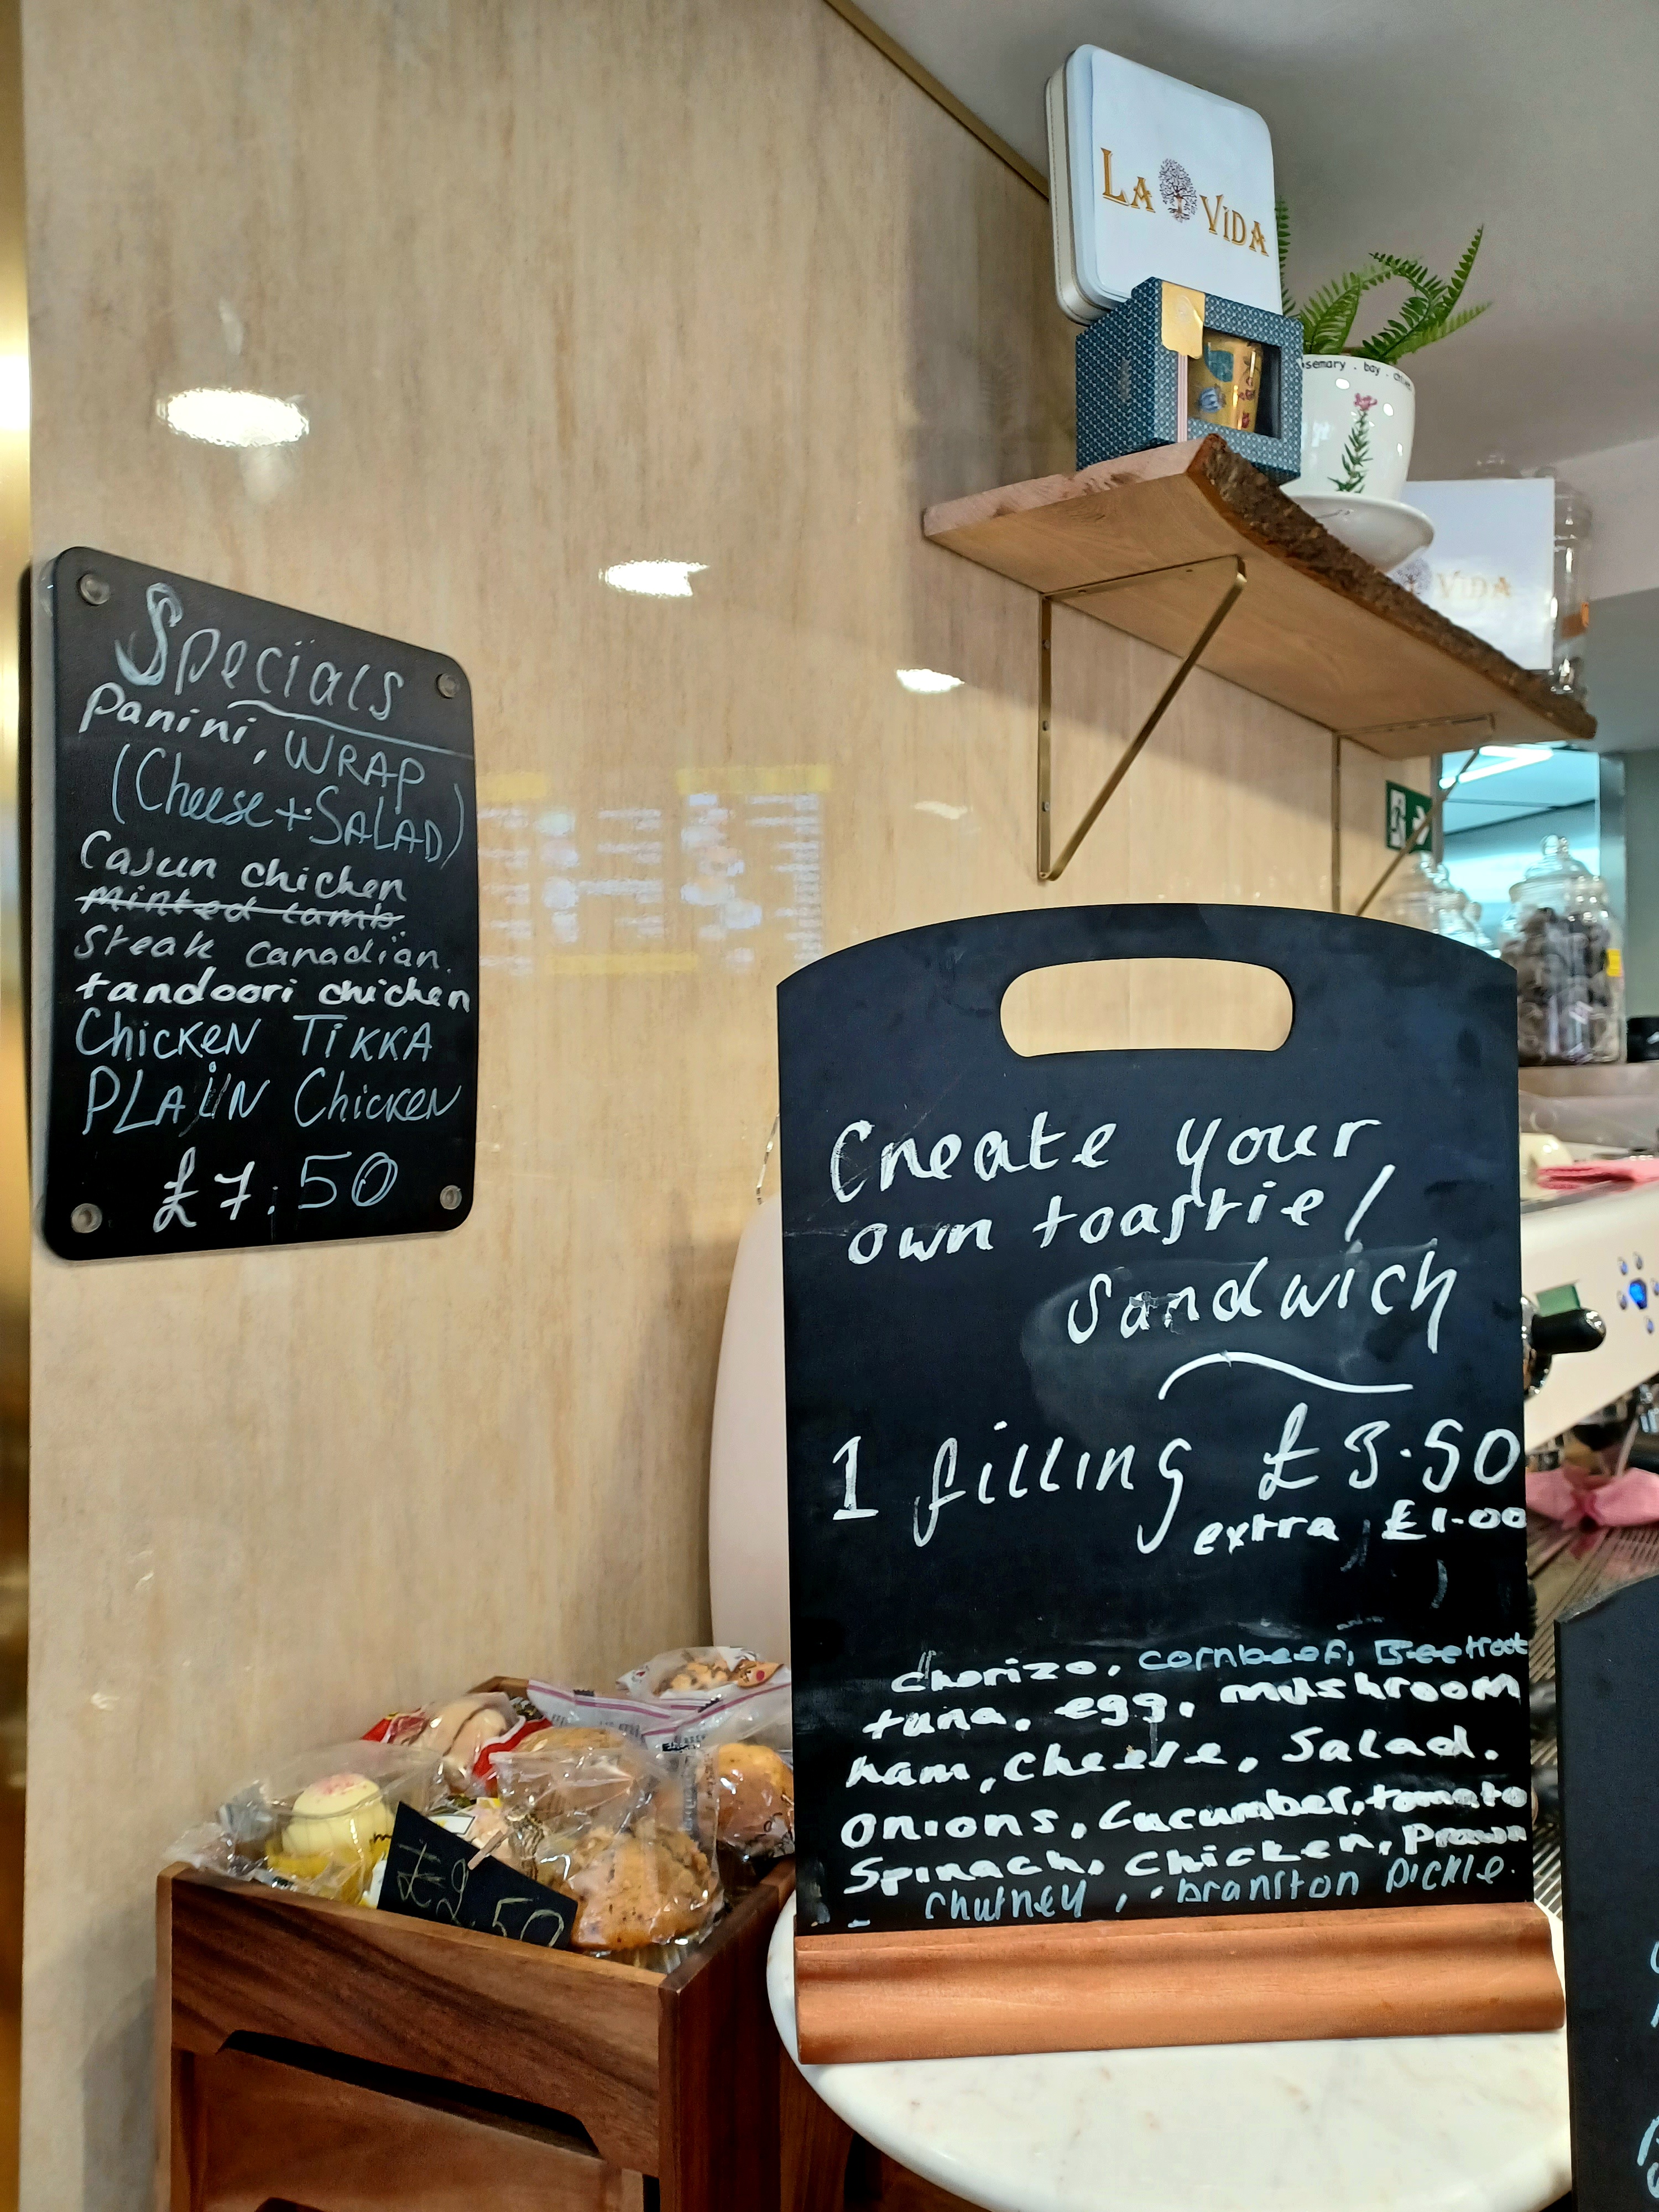 LA VIDA
rosemary . bay . chive
VIDA
Specials
Panini, WRAP
(Cheese + SALAD)
Cajun chicken
minted lamb.
Steak canadian.
tandoori chicken
Chicken TiKKA
PLAiN Chicken
£7.50
Create your
own toastie/
Sandwich
1 filling £3.50
extra £1.00
chorizo, cornbeef, Beetroot
tuna, egg, mushroom
ham, cheese, Salad.
Onions, Cucumber, tomato
Spinach, chicken, prawn
Chutney, branston pickle.
£2.50